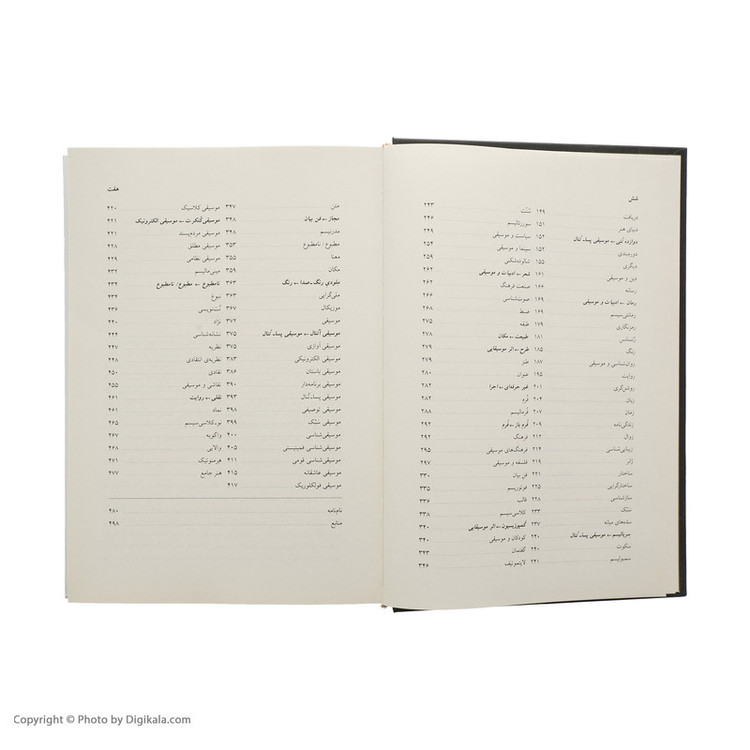 شش
دریافت ۱۴۹ سُنّت ۲۴۳
دنیای هنر ۱۵۱ سوررئالیسم ۲۴۶
دوازده تُنی ← موسیقی پساـ تُنال سیاست و موسیقی
دوره‌بندی ۱۵۲ سینما و موسیقی ۲۵۴
دیگری ۱۵۵ شالوده‌شکنی
دین و موسیقی ۱۶۱ شعر ← ادبیات و موسیقی ۲۶۲
رسانه صنعت فرهنگ
رمان ← ادبیات و موسیقی ۱۶۹ صوت‌شناسی ۲۶۶
رمانتی‌سیسم ضبط ۲۶۸
رمزنگاری طبقه ۲۷۵
رنسانس ۱۸۱ طبیعت ← مکان ۲۷۸
رنگ ۱۸۵ طرح ← اثر موسیقایی ۲۷۹
روان‌شناسی و موسیقی ۱۸۷ طنز ۲۷۹
روایت عنوان ۲۸۰
روشن‌گری ۲۰۱ غیر حرفه‌ای ← اجرا ۲۸۲
زبان ۲۰۴ فُرم ۲۸۲
زمان ۲۰۷ فرمالیسم ۲۸۸
زندگی‌نامه ۲۰۹ فُرم باز ← فُرم ۲۹۲
زوال ۲۱۴ فرهنگ
زیبایی‌شناسی فرهنگ‌های موسیقی ۲۹۵
ژانر ۲۱۹ فلسفه و موسیقی ۲۹۷
ساختار ۲۲۱ فن بیان ۳۳۰
ساختارگرایی فوتوریسم ۳۳۵
سازشناسی ۲۲۸ قالب ۳۳۶
سبْک ۲۳۳ کلاسی‌سیسم ۳۳۸
سده‌های میانه ۲۳۷ کُمپوزیسیون ← اثر موسیقایی ۳۴۰
سریالیسم ← موسیقی پساـ تُنال ۲۴۰ کودکان و موسیقی ۳۴۰
سکوت گفتمان ۳۴۳
سمبولیسم ۲۴۱ لایت‌موتیف ۳۴۶
هفت
متن ۳۴۷ موسیقی کلاسیک ۴۲۰
مجاز ← فن بیان ۳۴۸ موسیقی کُنکرت ← موسیقی الکترونیک ۴۲۱
مدرنیسم ۳۴۸ موسیقی مردم‌پسند ۴۲۱
مطبوع / نامطبوع ۳۵۳ موسیقی مطلق ۴۲۸
معنا ۳۵۵ موسیقی نظامی ۴۲۹
مکان ۳۵۹ مینی‌مالیسم ۴۳۲
ملودیِ رنگ ـ صدا ← رنگ ۳۶۳ نامطبوع ← مطبوع / نامطبوع ۴۳۴
ملی‌گرایی ۳۶۳ نبوغ ۴۳۴
موزیکال ۳۶۷ نُت‌نویسی ۴۳۷
موسیقی ۳۷۲ نژاد ۴۴۰
موسیقی آتُنال ← موسیقی پساـ تُنال ۳۷۵ نشانه‌شناسی ۴۴۴
موسیقی آوازی ۳۷۵ نظریه ۴۴۷
موسیقی الکترونیکی ۳۸۳ نظریه‌ی انتقادی ۴۴۸
موسیقی باستان ۳۸۶ نقادی ۴۵۰
موسیقی برنامه‌دار ۳۹۰ نقاشی و موسیقی ۴۵۵
موسیقی پساـ تُنال ۳۹۳ نقلی ← روایت ۴۶۱
موسیقی توصیفی ۳۹۸ نماد ۴۶۱
موسیقی سَبُک ۳۹۹ نوـ کلاسی‌سیسم ۴۶۵
موسیقی‌شناسی ۴۰۰ واگویه ۴۶۷
موسیقی‌شناسی فمینیستی ۴۰۵ والایی ۴۶۸
موسیقی‌شناسی قومی ۴۱۱ هرمنوتیک ۴۷۱
موسیقی عاشقانه ۴۱۵ هنر جامع ۴۷۷
موسیقی فولکلوریک ۴۱۷
نام‌نامه ۴۸۰
منابع ۴۹۸
Copyright © Photo by Digikala.com